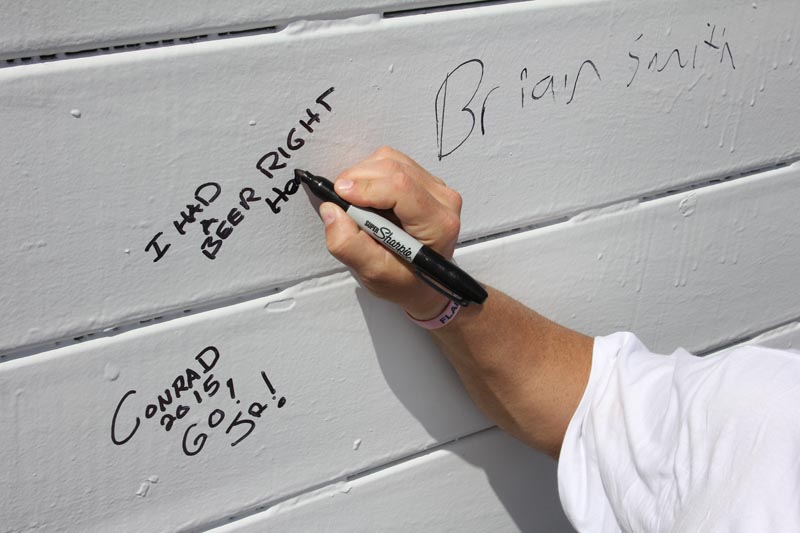 Brian Smith
I HAD
A
BEER RIGHT
HO
SUPER Sharpie
FLA
CONRAD
2015!
GO!
JR!